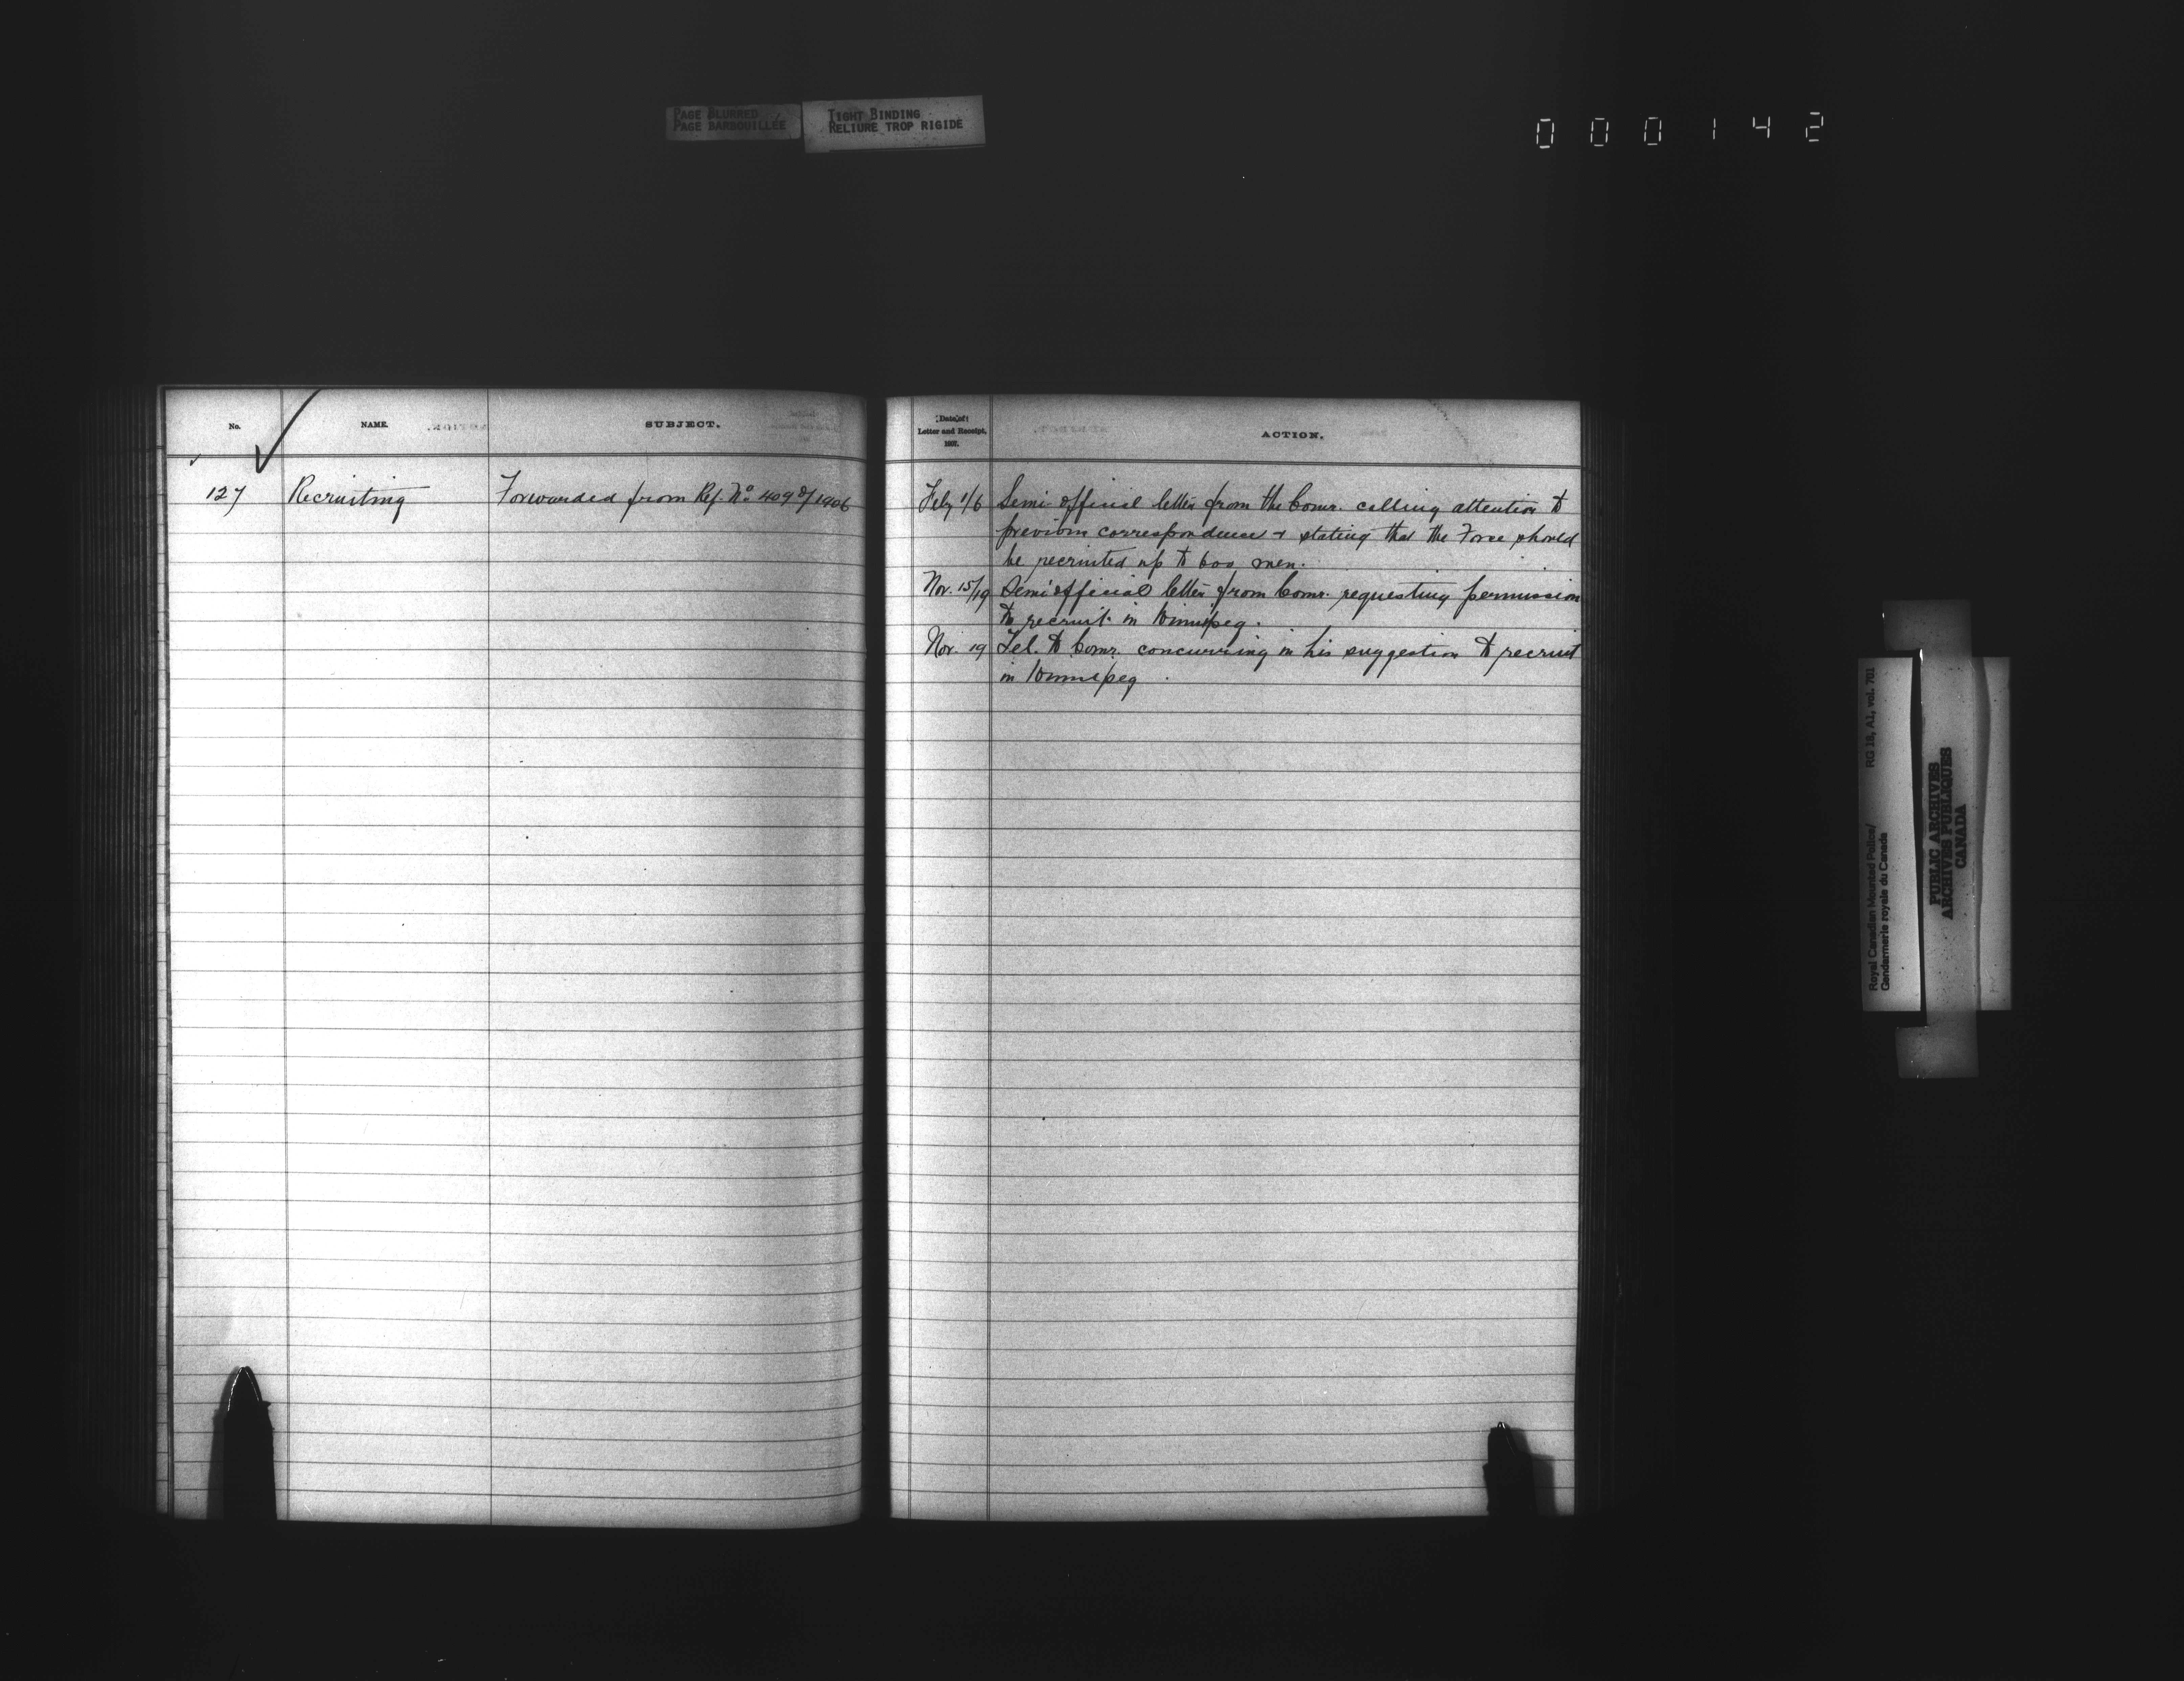 PAGE BLURRED
PAGE BARBOUILLÉE
TIGHT BINDING
RELIURE TROP RIGIDE
000142
No.
NAME.
SUBJECT.
127
Recruiting
Forwarded from Ref. No 409 of 1906
Date of
Letter and Receipt,
1907.
ACTION.
Feby 1/6 Semi-official letter from the Comr. calling attention to
previous correspondence & stating that the Force should
be recruited up to 600 men.
Nov. 15/19 Semi official letter from Comr. requesting permission
to recruit in Winnipeg.
Nov. 19 Tel. to Comr. concurring in his suggestion to recruit
in Winnipeg.
Royal Canadian Mounted Police/
Gendarmerie royale du Canada
RG 18, A1, vol. 701
PUBLIC ARCHIVES
ARCHIVES PUBLIQUES
CANADA